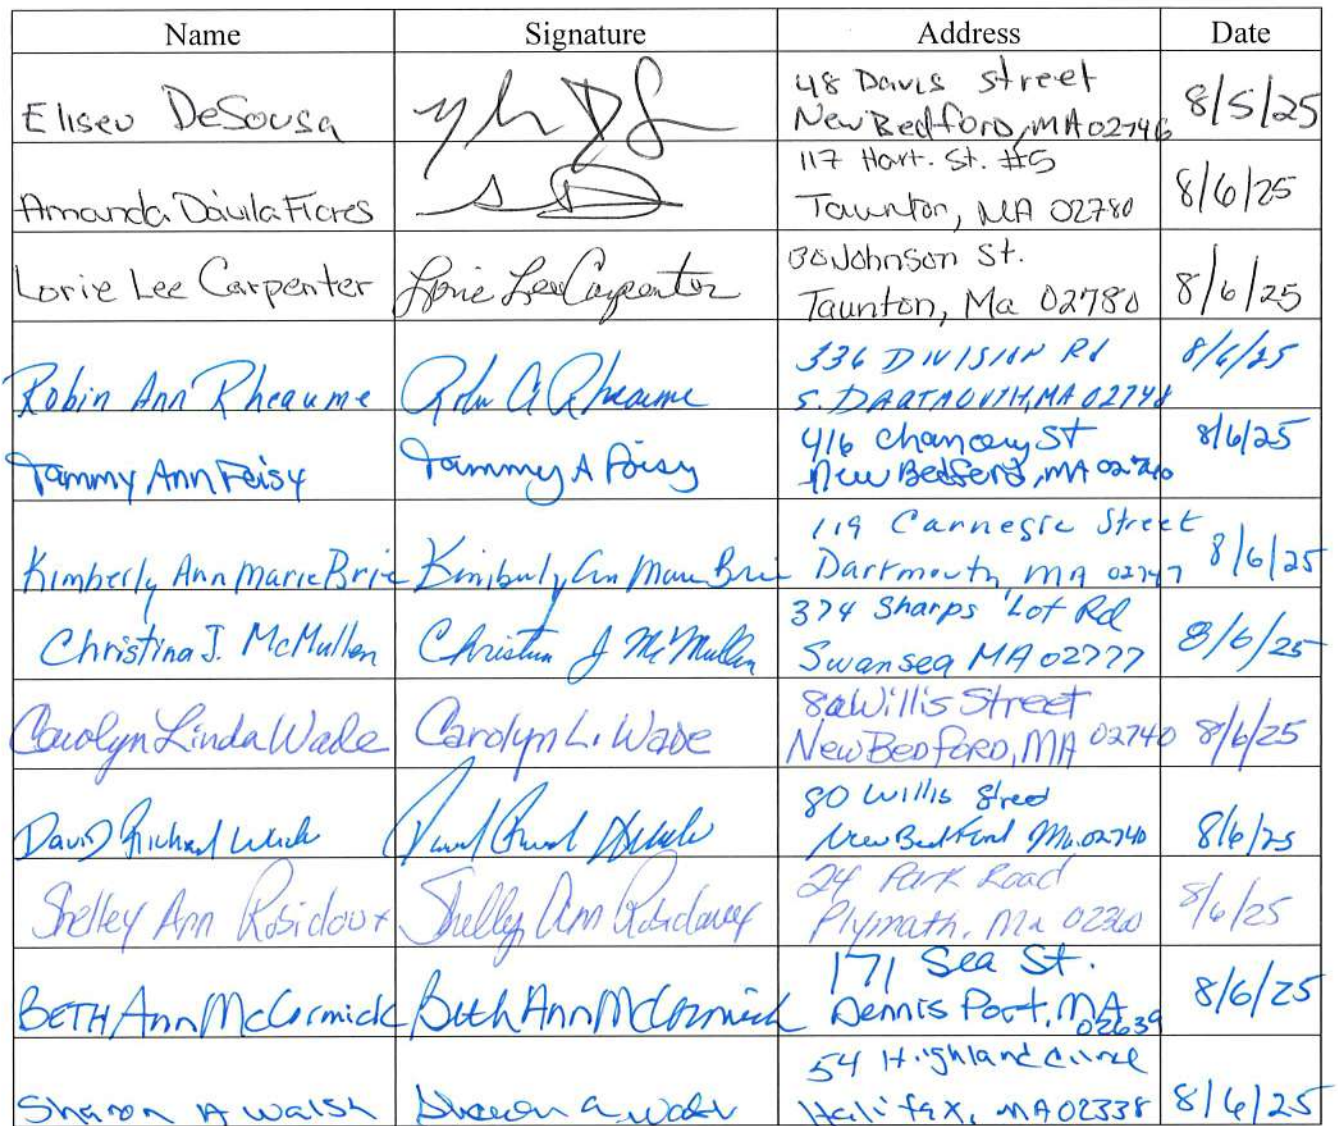 Name Signature Address Date
Eliseu DeSousa 48 Davis Street 8/5/25
New Bedford, MA 02746
Amanda Dávila Flores 117 Hart. St. #5 8/6/25
Taunton, MA 02780
Lorie Lee Carpenter Lorie Lee Carpenter 30 Johnson St. 8/6/25
Taunton, Ma 02780
Robin Ann Rheaume Robin A Rheaume 336 DIVISION Rd 8/6/25
S. DARTMOUTH, MA 02748
Tammy Ann Tammy A 416 Chancery St 8/6/25
New Bedford, MA 02740
Kimberly Ann Marie Brie Kimberly Ann Marie Bri 119 Carnegie Street 8/6/25
Dartmouth, MA 02747
Christina J. McMullen Christina J McMullen 374 Sharps Lot Rd 8/6/25
Swansea MA 02777
Carolyn Linda Wade Carolyn L. Wade Willis Street 8/6/25
New Bedford, MA 02740
David Richard David 80 Willis Street 8/6/25
New Bedford Ma. 02740
Shelley Ann Shelley Ann 24 Park Road 8/6/25
Plymouth, Ma 02360
BETH Ann McCormick Beth Ann McCormick 171 Sea St. 8/6/25
Dennis Port, MA
02639
Sharon A Walsh Sharon A Walsh 54 Highland Circle 8/6/25
Halifax, MA 02338